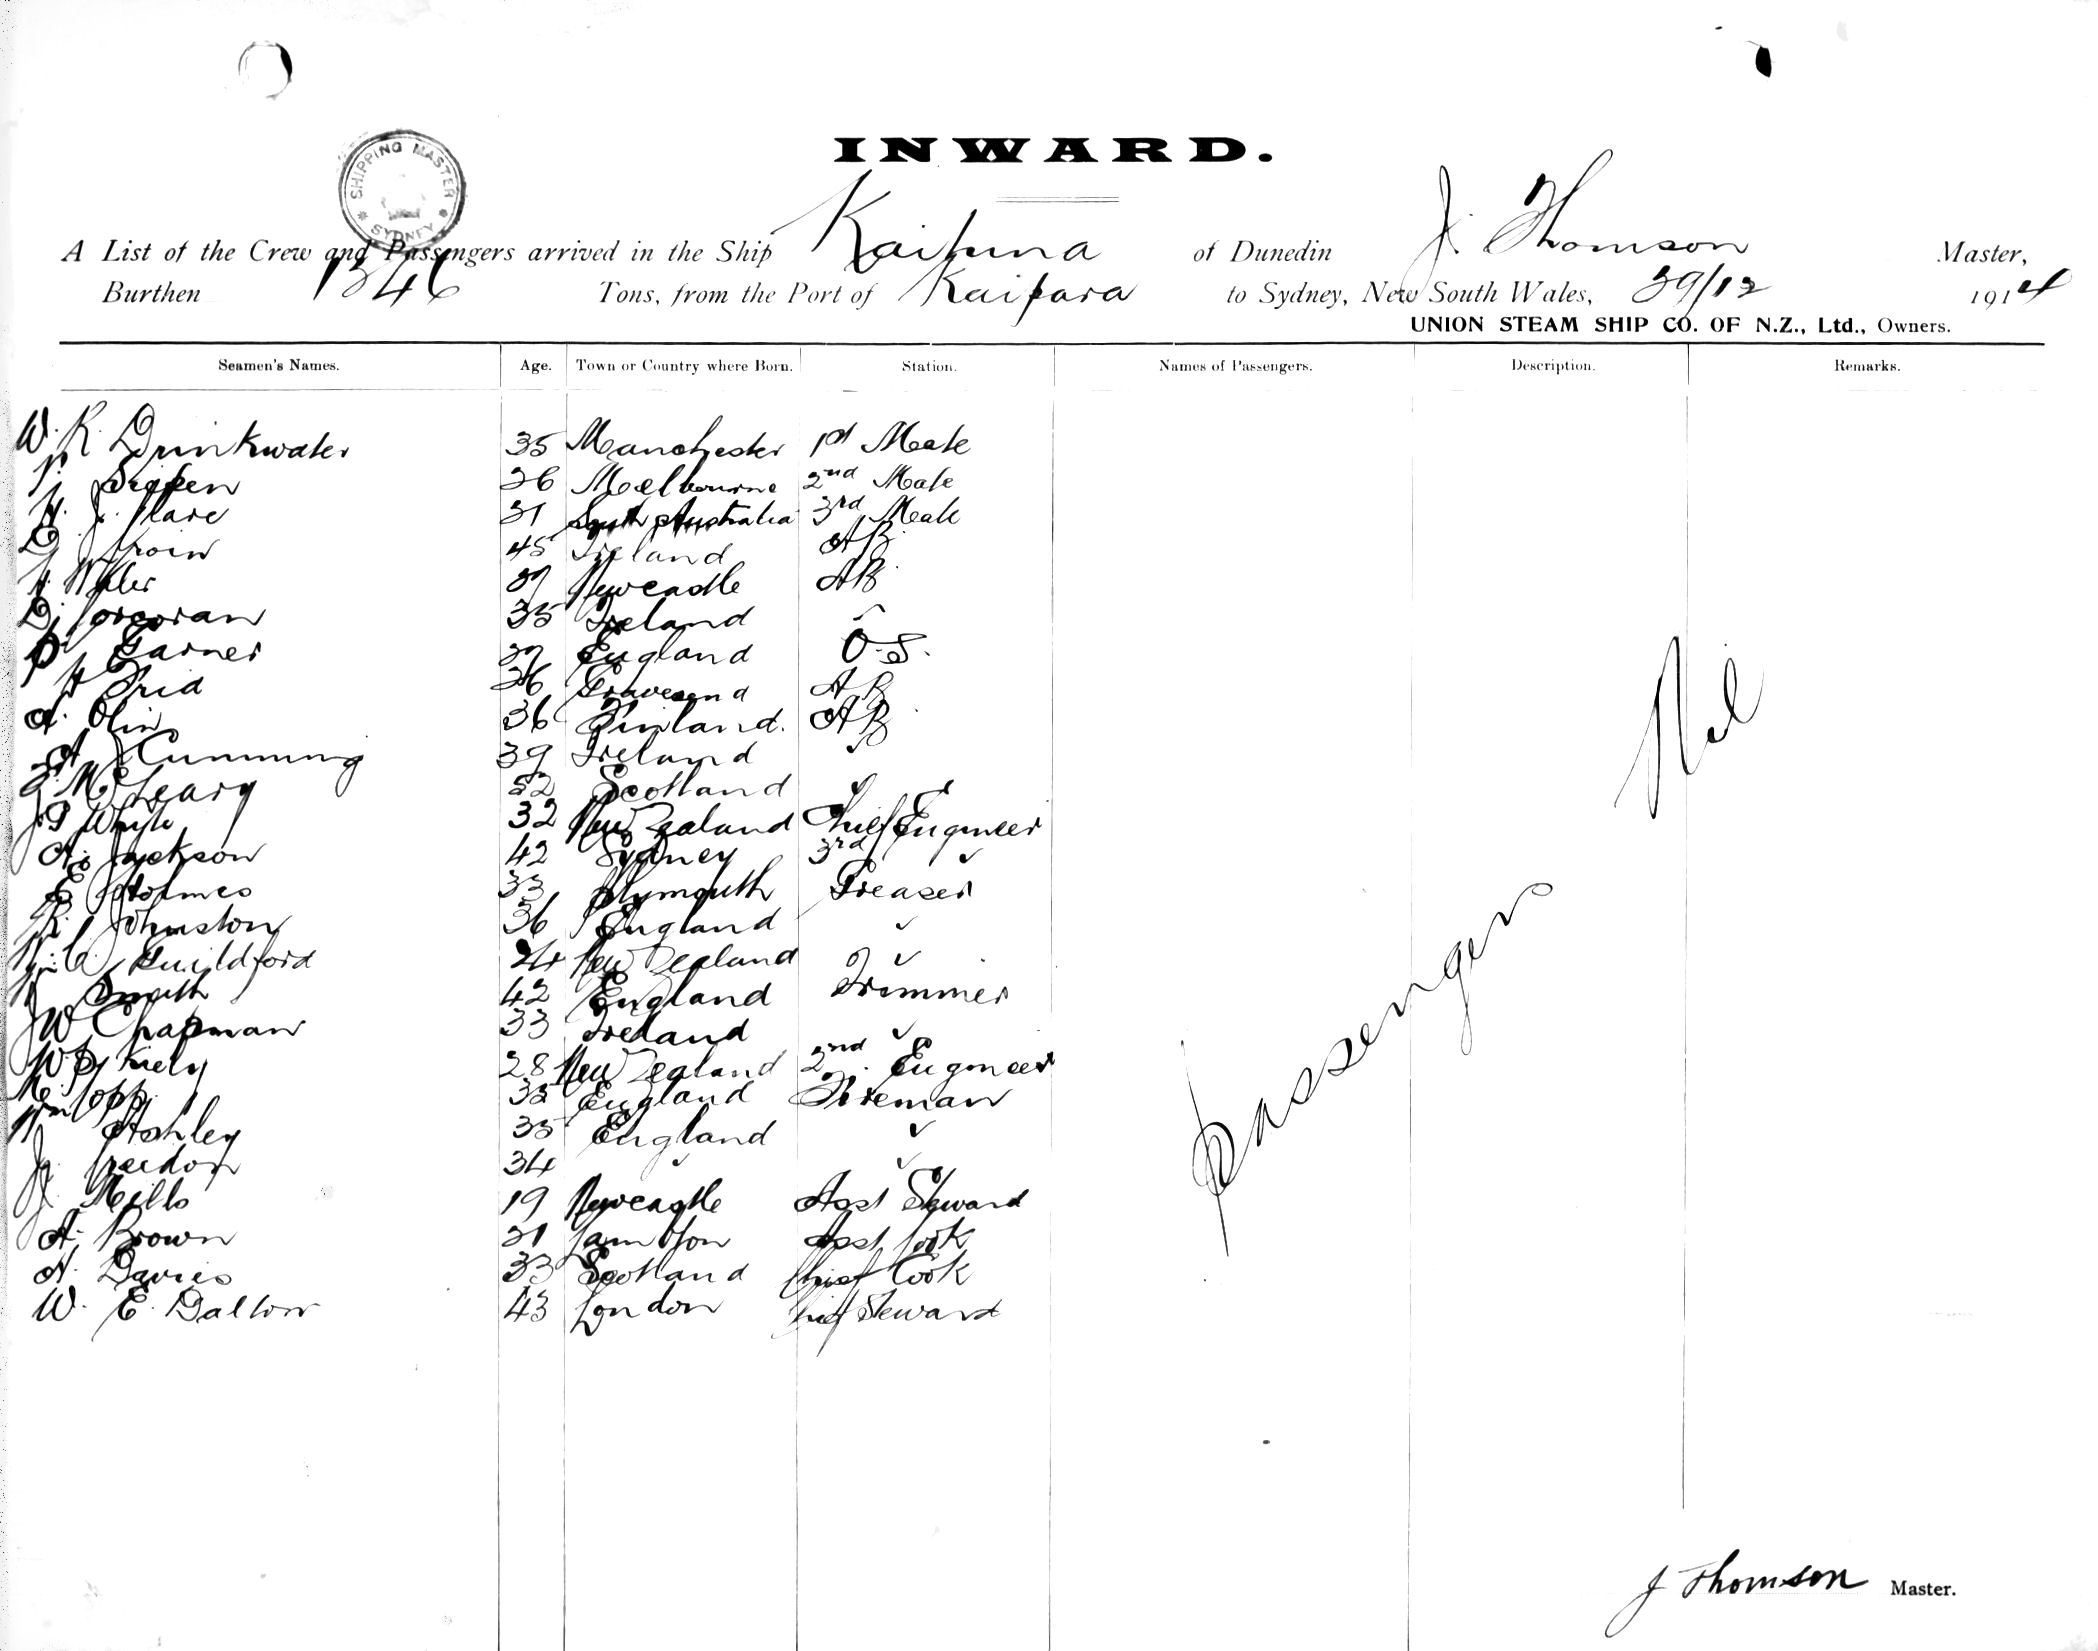 SHIPPING MASTER
* SYDNEY *
INWARD.
A List of the Crew and Passengers arrived in the Ship Kaituna of Dunedin J. Thomson Master,
Burthen 1346 Tons, from the Port of Kaipara to Sydney, New South Wales, 29/12 1914
UNION STEAM SHIP CO. OF N.Z., Ltd., Owners.
Seamen's Names. Age. Town or Country where Born. Station. Names of Passengers. Description. Remarks.
W. R. Drinkwater 35 Manchester 1st Mate
26 Melbourne 2nd Mate
31 South Australia 3rd Mate
45 Ireland AB
Newcastle AB
D. Corcoran 35 Ireland
Garner England O.S.
36 Gravesend AB
A. Olin 36 Finland. AB
A. Cumming 39 Ireland
52 Scotland
Whyte 32 New Zealand Chief Engineer
A. Jackson 42 Sydney 3rd
E Holmes 33 Plymouth Greaser
R. Johnston 36 England
Guildford 24 New Zealand
Smith 42 England Trimmer
W Chapman 33 Ireland
Kiely 28 New Zealand 2nd Engineer
England Fireman
Ashley 35 England
34
J. Mills 19 Newcastle Asst Steward
A. Brown Lambton Asst Cook
Davies 33 Scotland Chief Cook
W. E. Dalton 43 London Chief Steward
Passengers Nil
J Thomson Master.